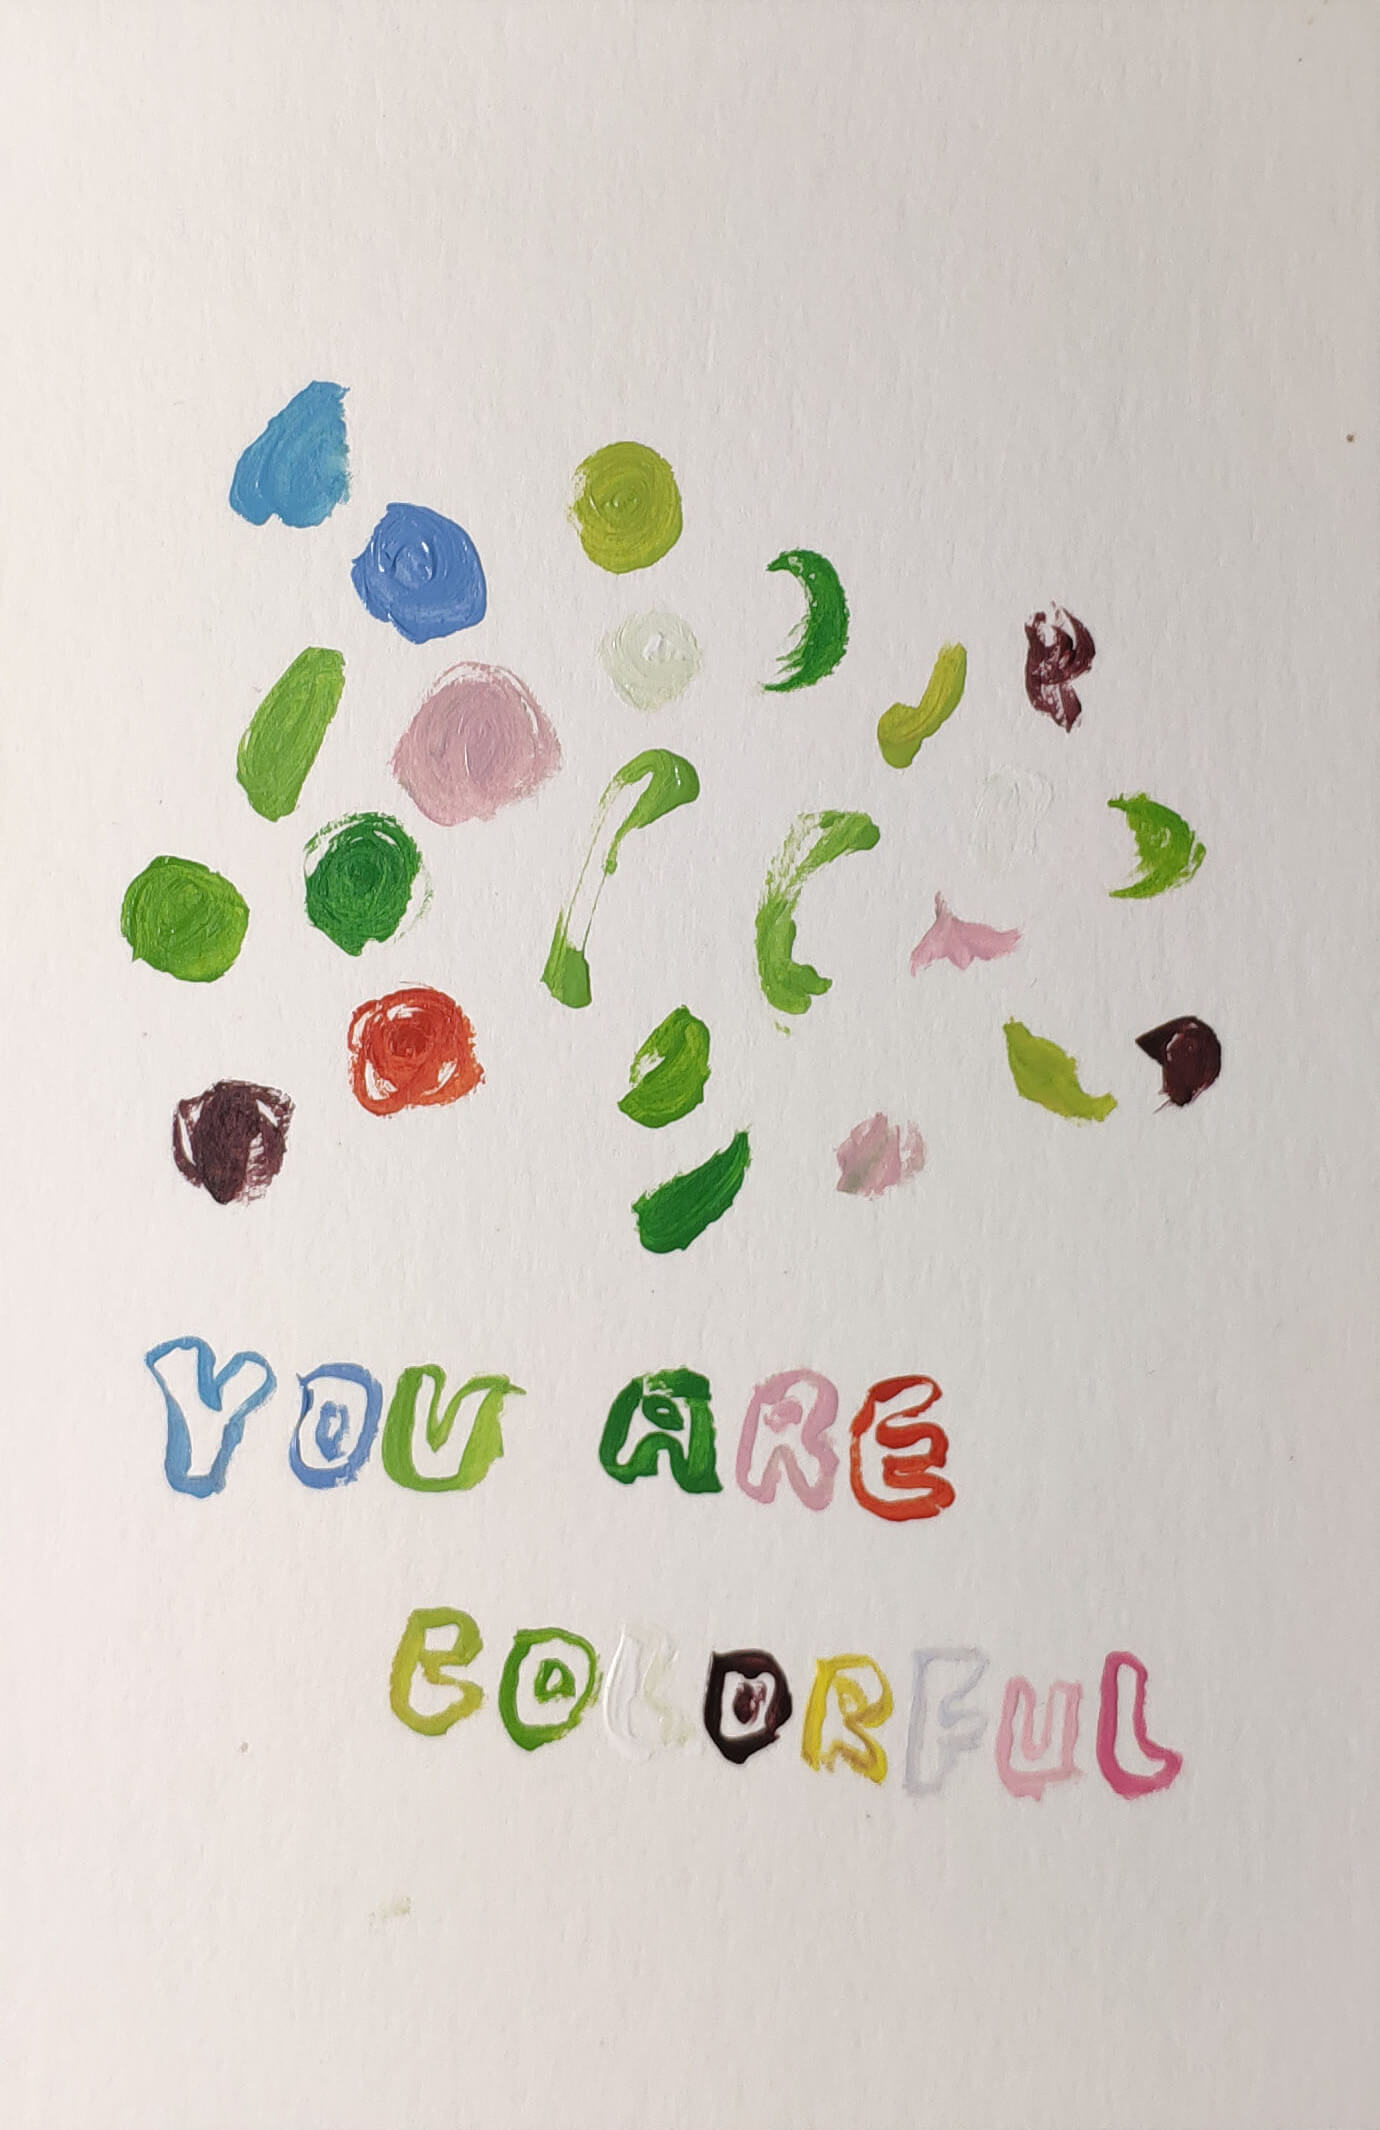 YOU ARE
COLORFUL